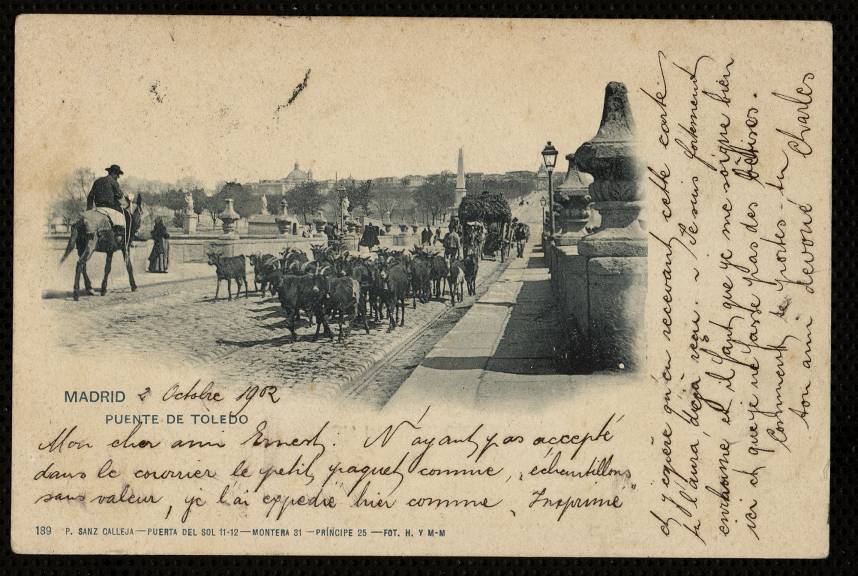 MADRID 2 Octobre 1902
PUENTE DE TOLEDO
Mon cher ami Ernest. N'ayant pas accepté
dans le courrier le petit paquet comme, échantillons
sans valeur, je l'ai expedié hier comme "Imprimé"
189 P. SANZ CALLEJA—PUERTA DEL SOL 11-12—MONTERA 31—PRÍNCIPE 25—FOT. H. Y M-M
et j'espère qu'en recevant cette carte
tu l'aura déja reçu. – Je suis fortement
enrhumé et il faut que je me soigne bien
ici et que je ne fasse pas des bêtises.
Comment te portes-tu
ton ami devoué Charles